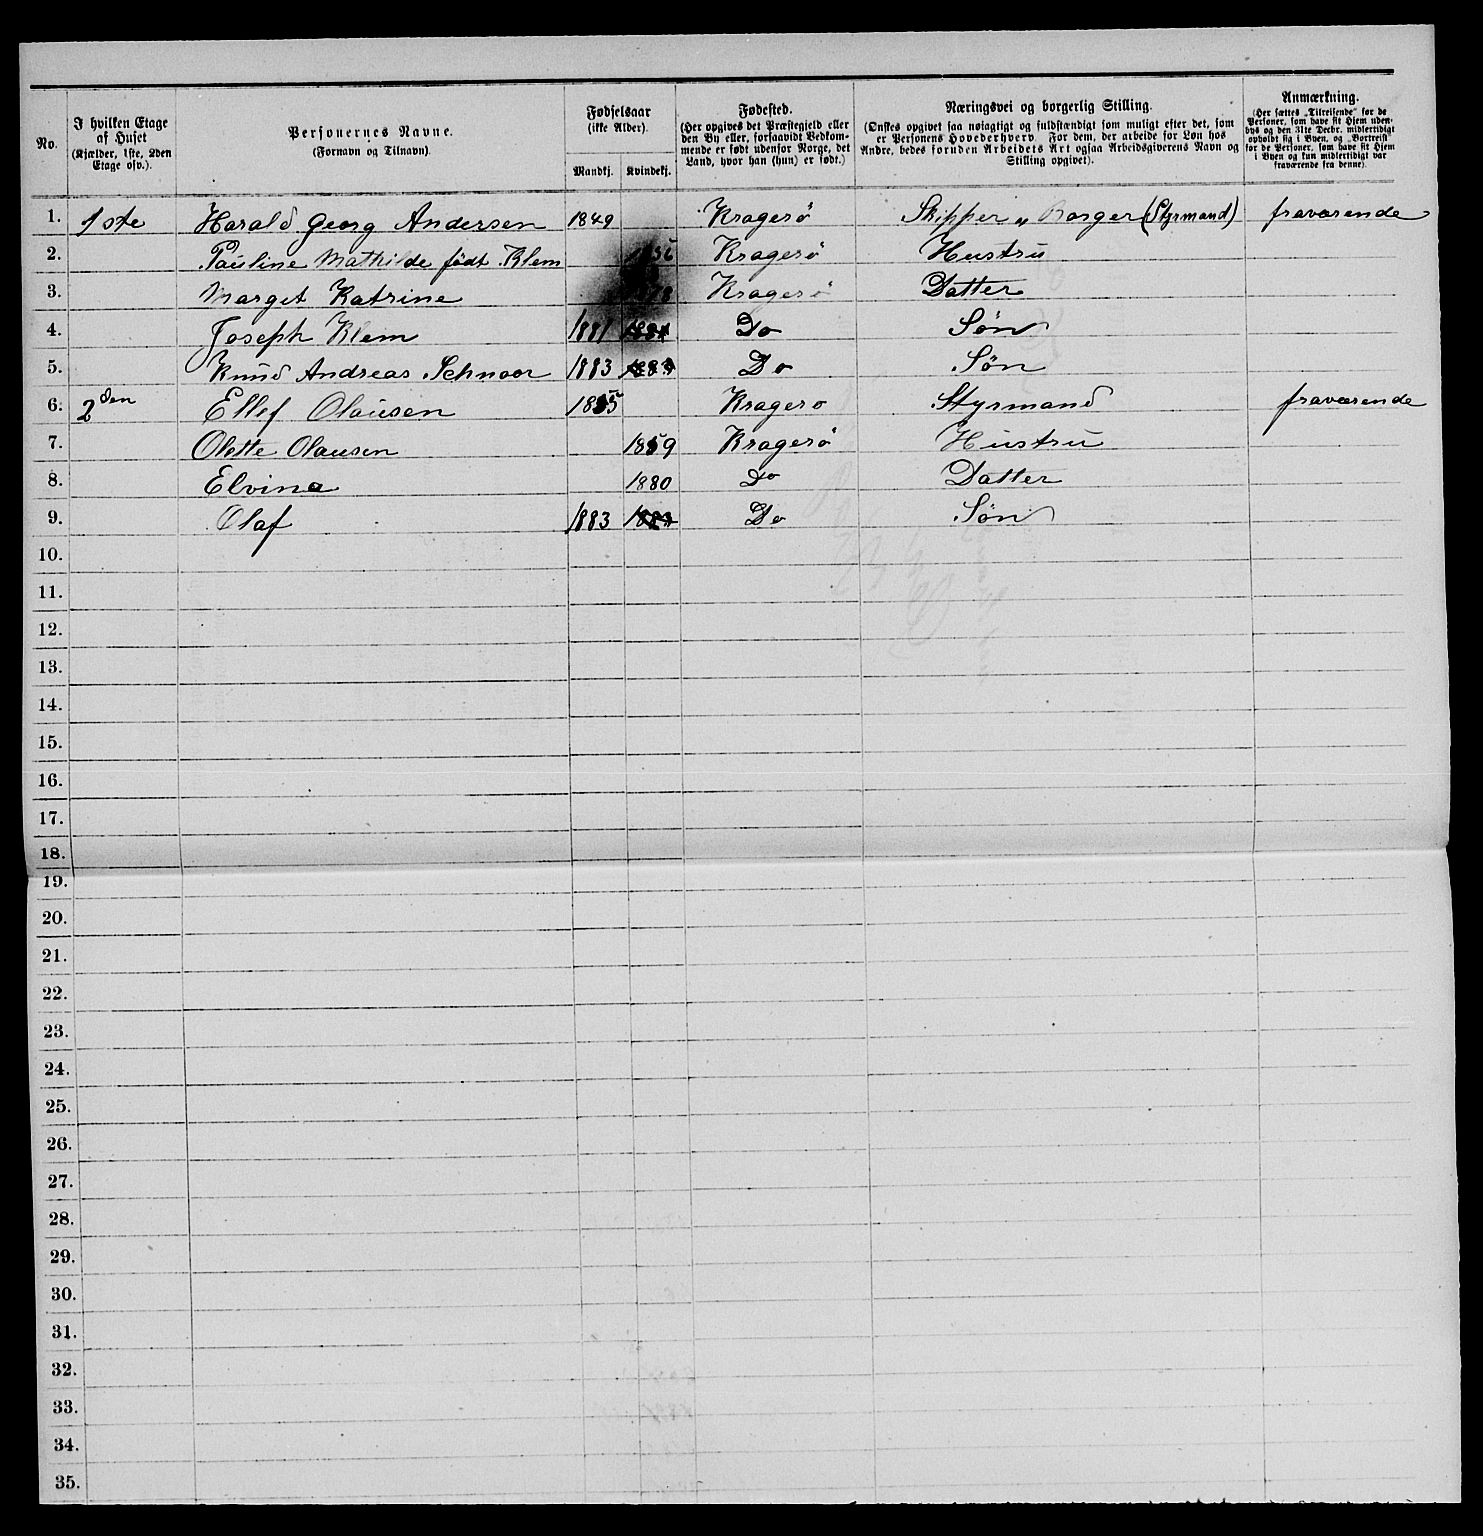 No.
I hvilken Etage
af Huset
(Kjælder, 1ste, 2den
Etage osv.).
Personernes Navne.
(Fornavn og Tilnavn).
Fødselsaar
(ikke Alder).
Mandkj. Kvindekj.
Fødested.
(Her opgives det Præstegjeld eller
den By eller, forsaavidt Vedkom-
mende er født udenfor Norge, det
Land, hvor han (hun) er født.)
Næringsvei og borgerlig Stilling.
(Ønskes opgivet saa nøiagtigt og fuldstændigt som muligt efter det, som
er Personens Hovederhverv. For dem, der arbeide for Løn hos
Andre, bedes foruden Arbeidets Art ogsaa Arbeidsgiverens Navn og
Stilling opgivet).
Anmærkning.
(Her sættes „Tilreisende“ for de
Personer, som have sit Hjem uden-
bys og den 31te Decbr. midlertidigt
opholdt sig i Byen, og „Bortreist“
for de Personer, som have sit Hjem
i Byen og kun midlertidigt var
fraværende fra denne).
1. 1ste Harald Georg Andersen 1849 Kragerö Skipper „ Borger (Styrmand) fraværende
2. Pauline Mathilde födt Klem Kragerö Hustru
3. Marget Katrine Kragerö Datter
4. Joseph Klem 1881 1881 Do Sön
5. Knud Andreas Schnoor 1883 1883 Do Sön
6. 2den Ellef Olausen 1855 Kragero Styrmand fraværende
7. Olette Olausen 1859 Kragerö Hustru
8. Elvina 1880 Do Datter
9. Olaf 1883 1883 Do Sön
10.
11.
12.
13.
14.
15.
16.
17.
18.
19.
20.
21.
22.
23.
24.
25.
26.
27.
28.
29.
30.
31.
32.
33.
34.
35.